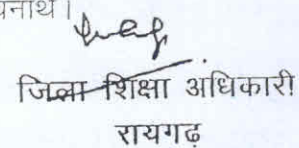 नाथ।
जिला शिक्षा अधिकारी
रायगढ़